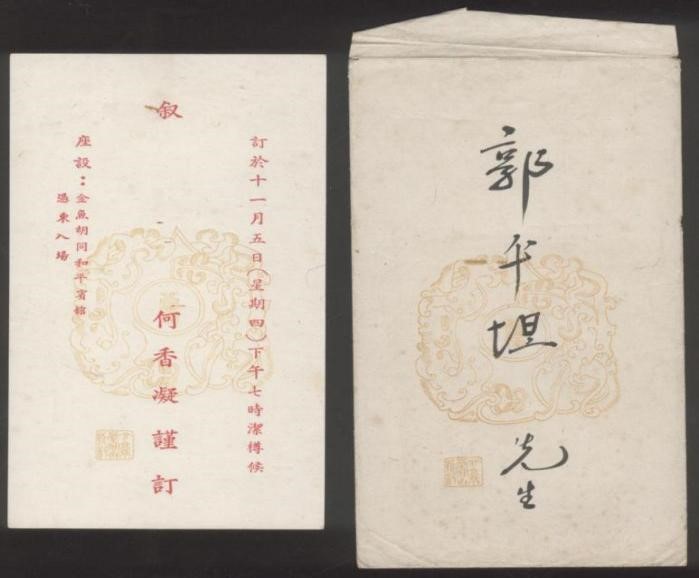 訂於十一月五日(星期四)下午七時潔樽候
叙
何香凝謹訂
座設：金魚胡同和平賓館
憑柬入場
郭平坦先生